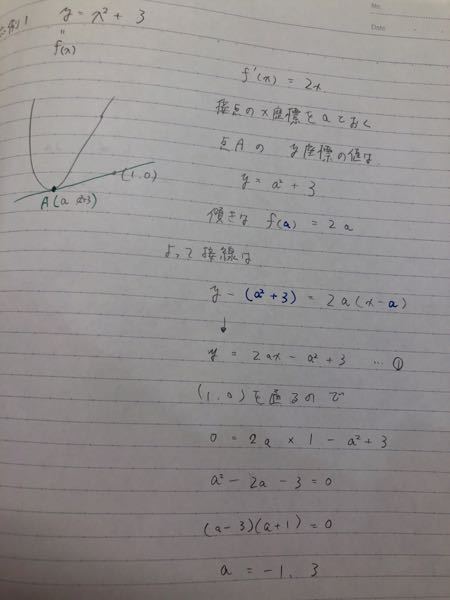 No.
Date
例1 y = x² + 3
"
f(x)
f'(x) = 2x
接点のx座標をaとおく
点Aの y座標の値は
y = a² + 3
(1.0)
A(a a²+3)
傾きは f(a) = 2a
よって接線は
y - (a² + 3) = 2a(x - a)
↓
y = 2ax - a² + 3 … ①
(1.0)を通るので
0 = 2a × 1 - a² + 3
a² - 2a - 3 = 0
(a - 3)(a + 1) = 0
a = -1. 3